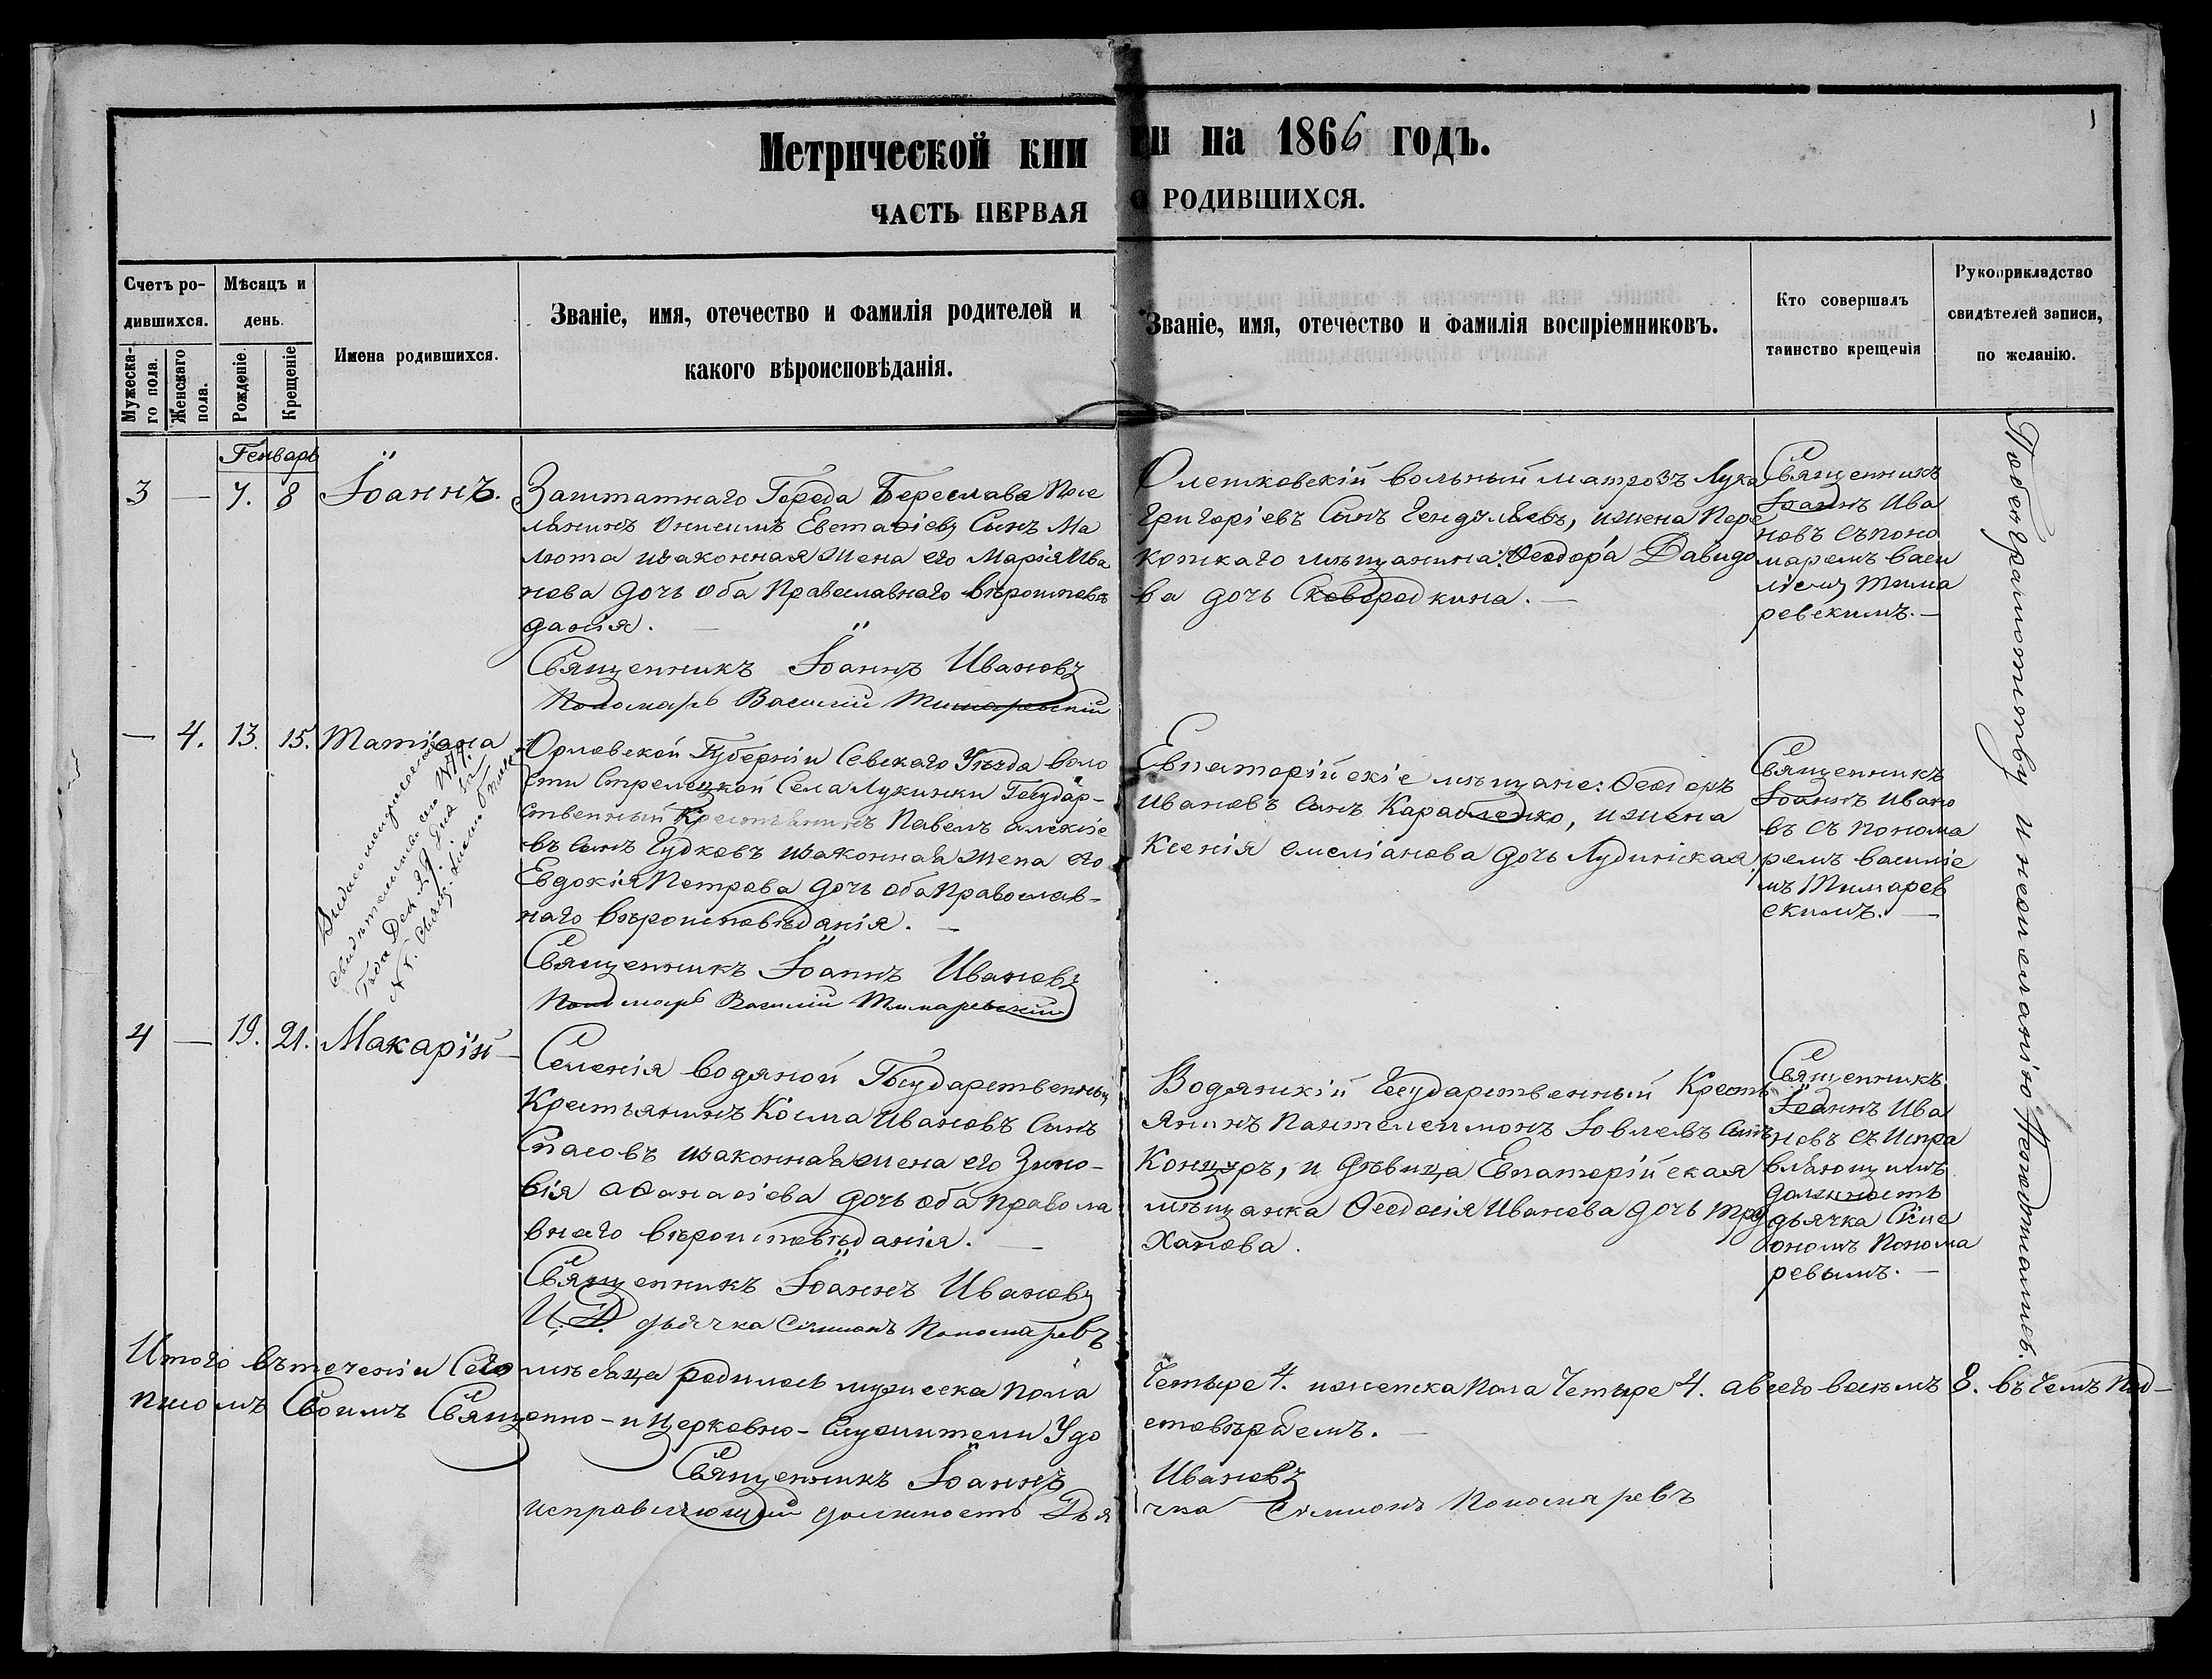 Метрической кни ги на 1866 годъ.
ЧАСТЬ ПЕРВАЯ О РОДИВШИХСЯ.
1
Счетъ ро-
дившихся.
Мужеска-
го пола.
Женскаго
пола.
Мѣсяцъ и
день.
Рожденіе.
Крещеніе
Имена родившихся.
Званіе, имя, отечество и фамилія родителей и
какого вѣроисповѣданія.
Званіе, имя, отечество и фамилія воспріемниковъ.
Кто совершалъ
таинство крещенія
Рукоприкладство
свидѣтелей записи,
по желанію.
Генварь
3 — 7. 8 Іоаннъ.
Заштатнаго Города Береслава Посе
лянинъ Онисимъ Евстафіевъ Сынъ Ма
люта изаконная жена его Марія Ива
нова дочь оба Православнаго вѣроисповѣ
данія. —
Священникъ Іоаннъ Ивановъ
Пономарь Василій Тимаревскій
Олешковскій вольный матрозъ Лука
Григоріевъ Сынъ Гендулаевъ, ижена Пере
копскаго мѣщанина: Ѳеодора Давидо
ва дочь Сковородкина. —
Священникъ
Іоаннъ Ива
новъ съ поно
маремъ Васи
ліемъ Тима
ревскимъ. —
— 4. 13. 15. Татіана
Орловской Губерніи Севскаго Уѣзда воло
сти Стрелецкой Села Лукинки Государ-
ственный Крестьянинъ Павелъ Алексіе
въ Сынъ Гудковъ изаконная жена его
Евдокія Петрова дочь оба Православ-
наго вѣроисповѣданія. —
Священникъ Іоаннъ Ивановъ
Пономарь Василій Тимаревскій
Евпаторійскіе мѣщане: Ѳеодоръ
Ивановъ Сынъ Карабленко, ижена
Ксенія Емеліанова дочь Лудинская.
Священникъ
Іоаннъ Ивано
въ съ понома
ремъ Василіе
мъ Тимарев
скимъ. —
4 — 19. 21. Макарій —
Селенія Водяной Государственный
Крестьянинъ Косма Ивановъ Сынъ
Спасовъ изаконная жена его Зино-
вія Аѳанасіева дочь оба Правосла
внаго вѣроисповѣданія. —
Священникъ Іоаннъ Ивановъ
И. Д. дьячка Сімионъ Пономаревъ
Водянскій Государственный Кресть
янинъ Пантелеимонъ Іовлевъ Сынъ
Концуръ, и дѣвица Евпаторійская
мѣщанка Ѳеодосія Иванова дочь Тру
ханова.
Священникъ
Іоаннъ Ива
новъ съ Испра
вляющимъ
должность
дьячка Симе
ономъ Понома
ревымъ. —
По безграмотству и неимѣнію
Итого въ теченіи Сего мѣсяца родилось мужеска пола Четыре 4. иженска пола Четыре 4. а всего восемъ 8. въ чемъ Под-
писомъ Своимъ Священно-и Церковно-Служители Удо стовѣряемъ.
Священникъ Іоаннъ Ивановъ
исправляющій должность Дья чка Сімионъ Пономаревъ